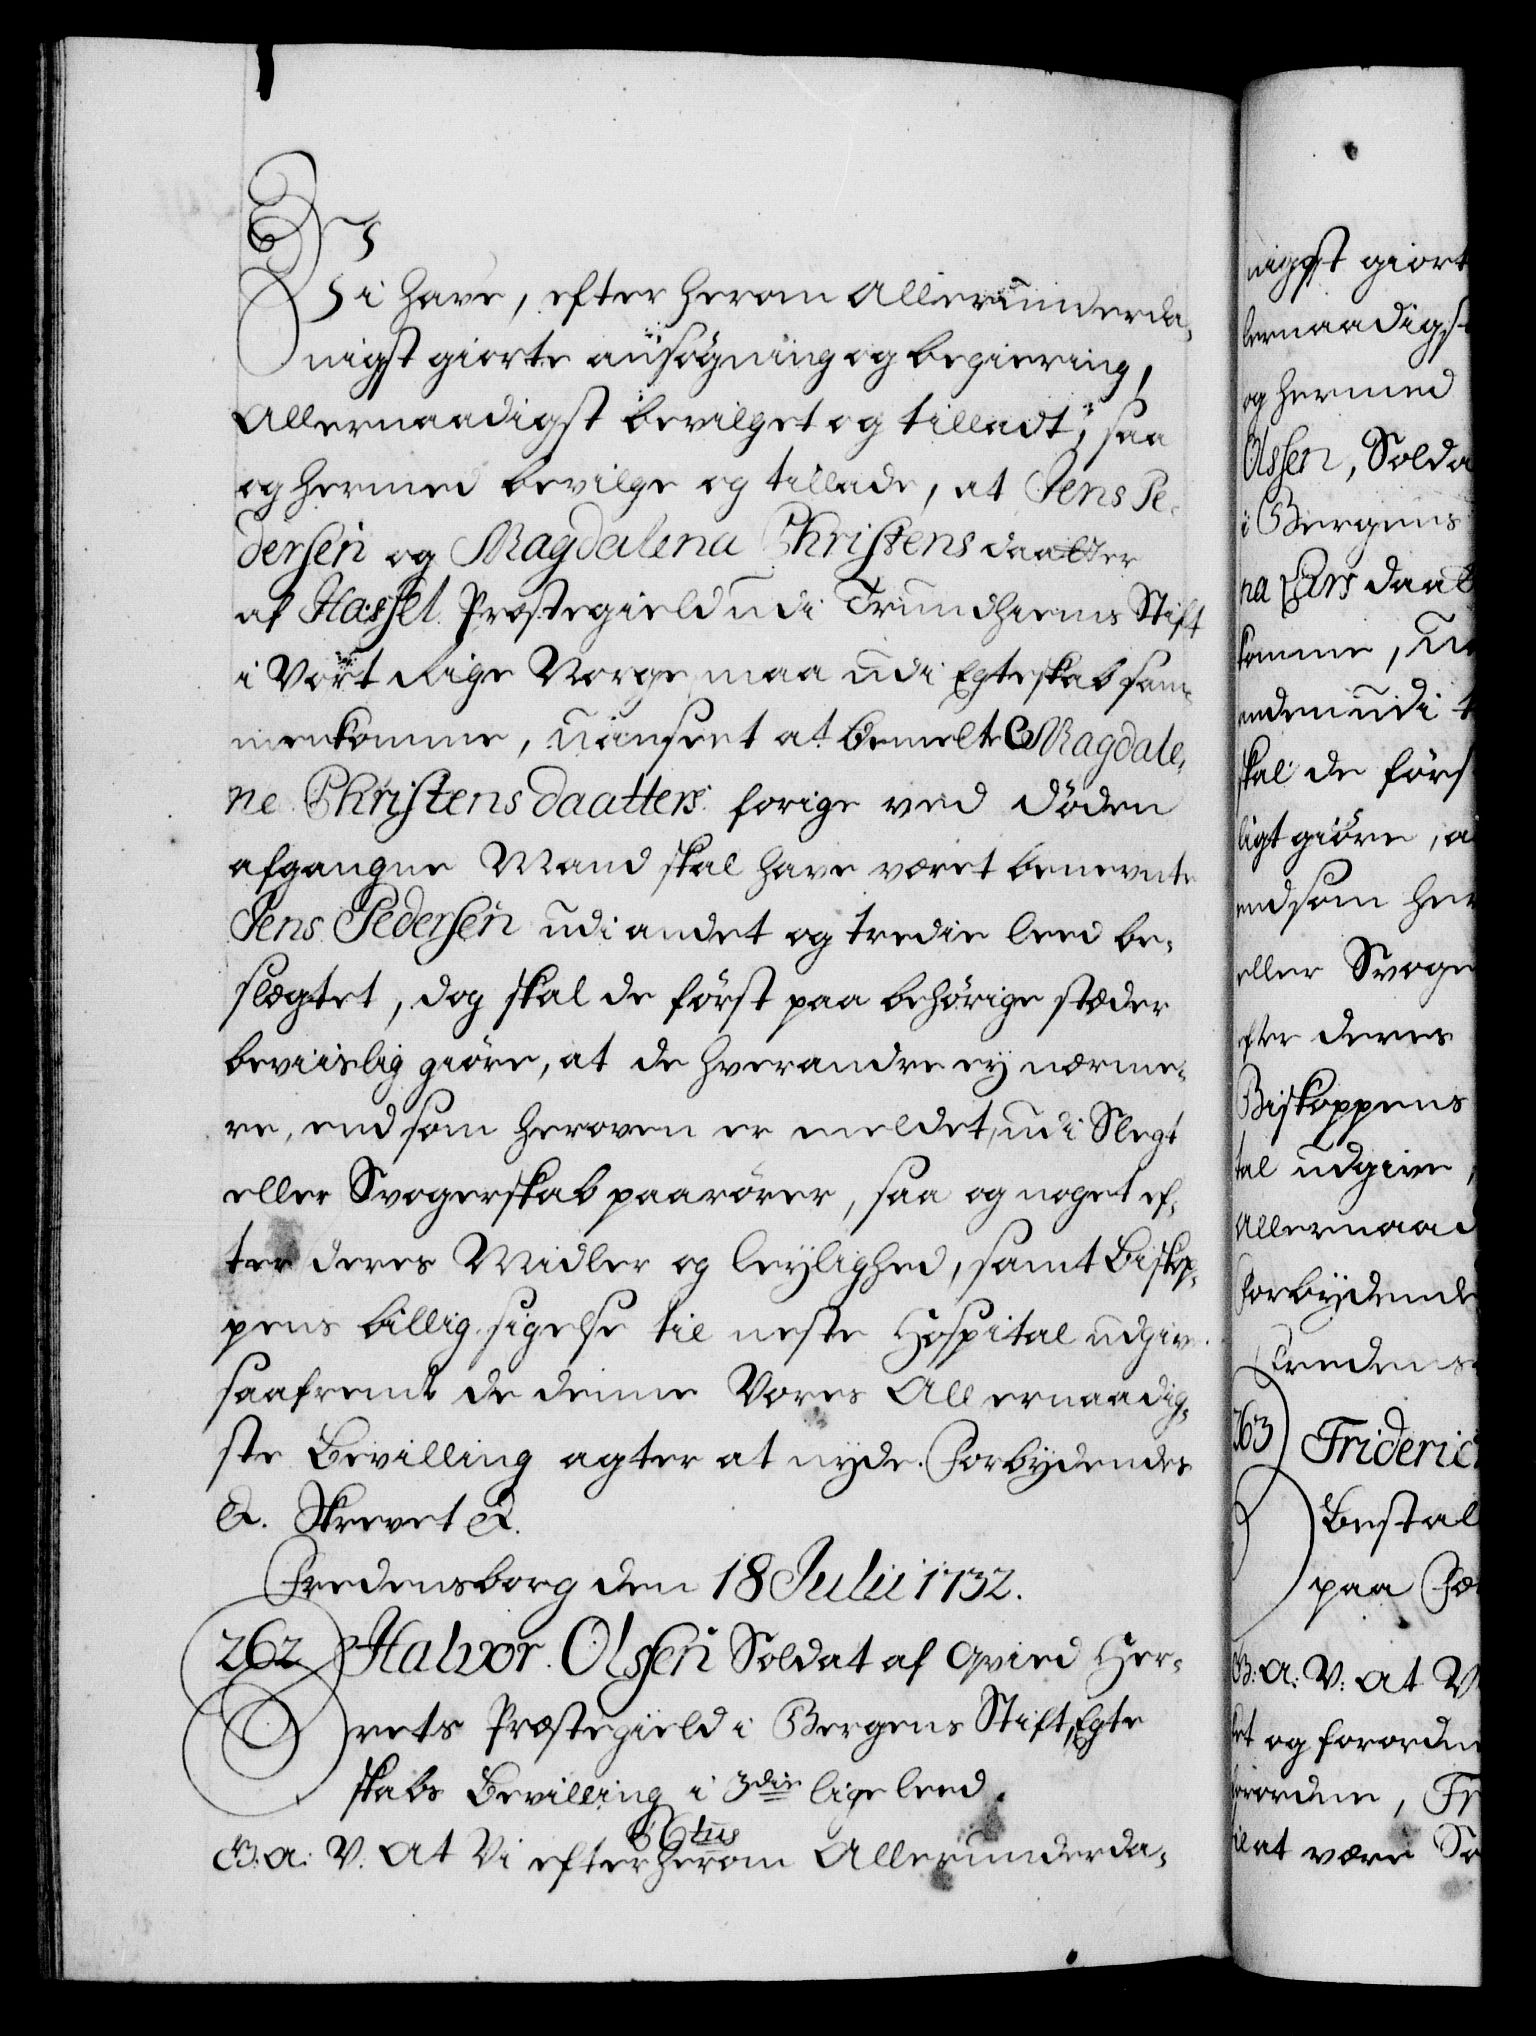 Vi have, efter herom Allerunderda-
nigst giorte ansøgning og begiering,
Allernaadigst bevilget og tilladt, saa
og hermed bevilge og tillade, at Jens Pe-
dersen og Magdalena Christens daatter
af Hassel Præstegield udi Trundhiems Stift
i Vort Rige Norge maa udi Egteskab sam-
menkomme, uanseet at bemelte Magdale-
ne Christens daatters forige ved døden
afgangne Mand skal have været benevnte
Jens Pedersen udi andet og tredie leed be-
slægtet, dog skal de først paa behørige stæder
beviislig giøre, at de hverandre ey nærme-
re, end som heroven er meldet, udi Slegt
eller Svogerskab paarører, saa og noget ef-
ter deres Midler og leylighed, samt Biskop-
pens billig sigelse til neste Hospital udgive
saafremt de denne Vores Allernaadig-
ste Bevilling agter at nyde. Forbydendes
&. Skrevet &.
Fredensborg den 18 Julii 1732.
262 Halvor Olssen Soldat af Qvind Her-
rets Præstegield i Bergens Stift, Egte
skabs Bevilling i 3die lige leed.
G: A: V. At Vi efter herom Allerunderda-
nigst giort
lernaadigst
og hermed
Olssen, Solda
i Bergens
na Lars daat
komme, u
enden udi t
skal de først
ligt giøre, a
end som her
eller Svoge
efter deres
Biskoppens
tal udgive,
Allernaad
Forbydende
Fredens
263 Frideric
Bestal
paa
G: A: V: At V
et og forordne
forordne, Fr
til at være So